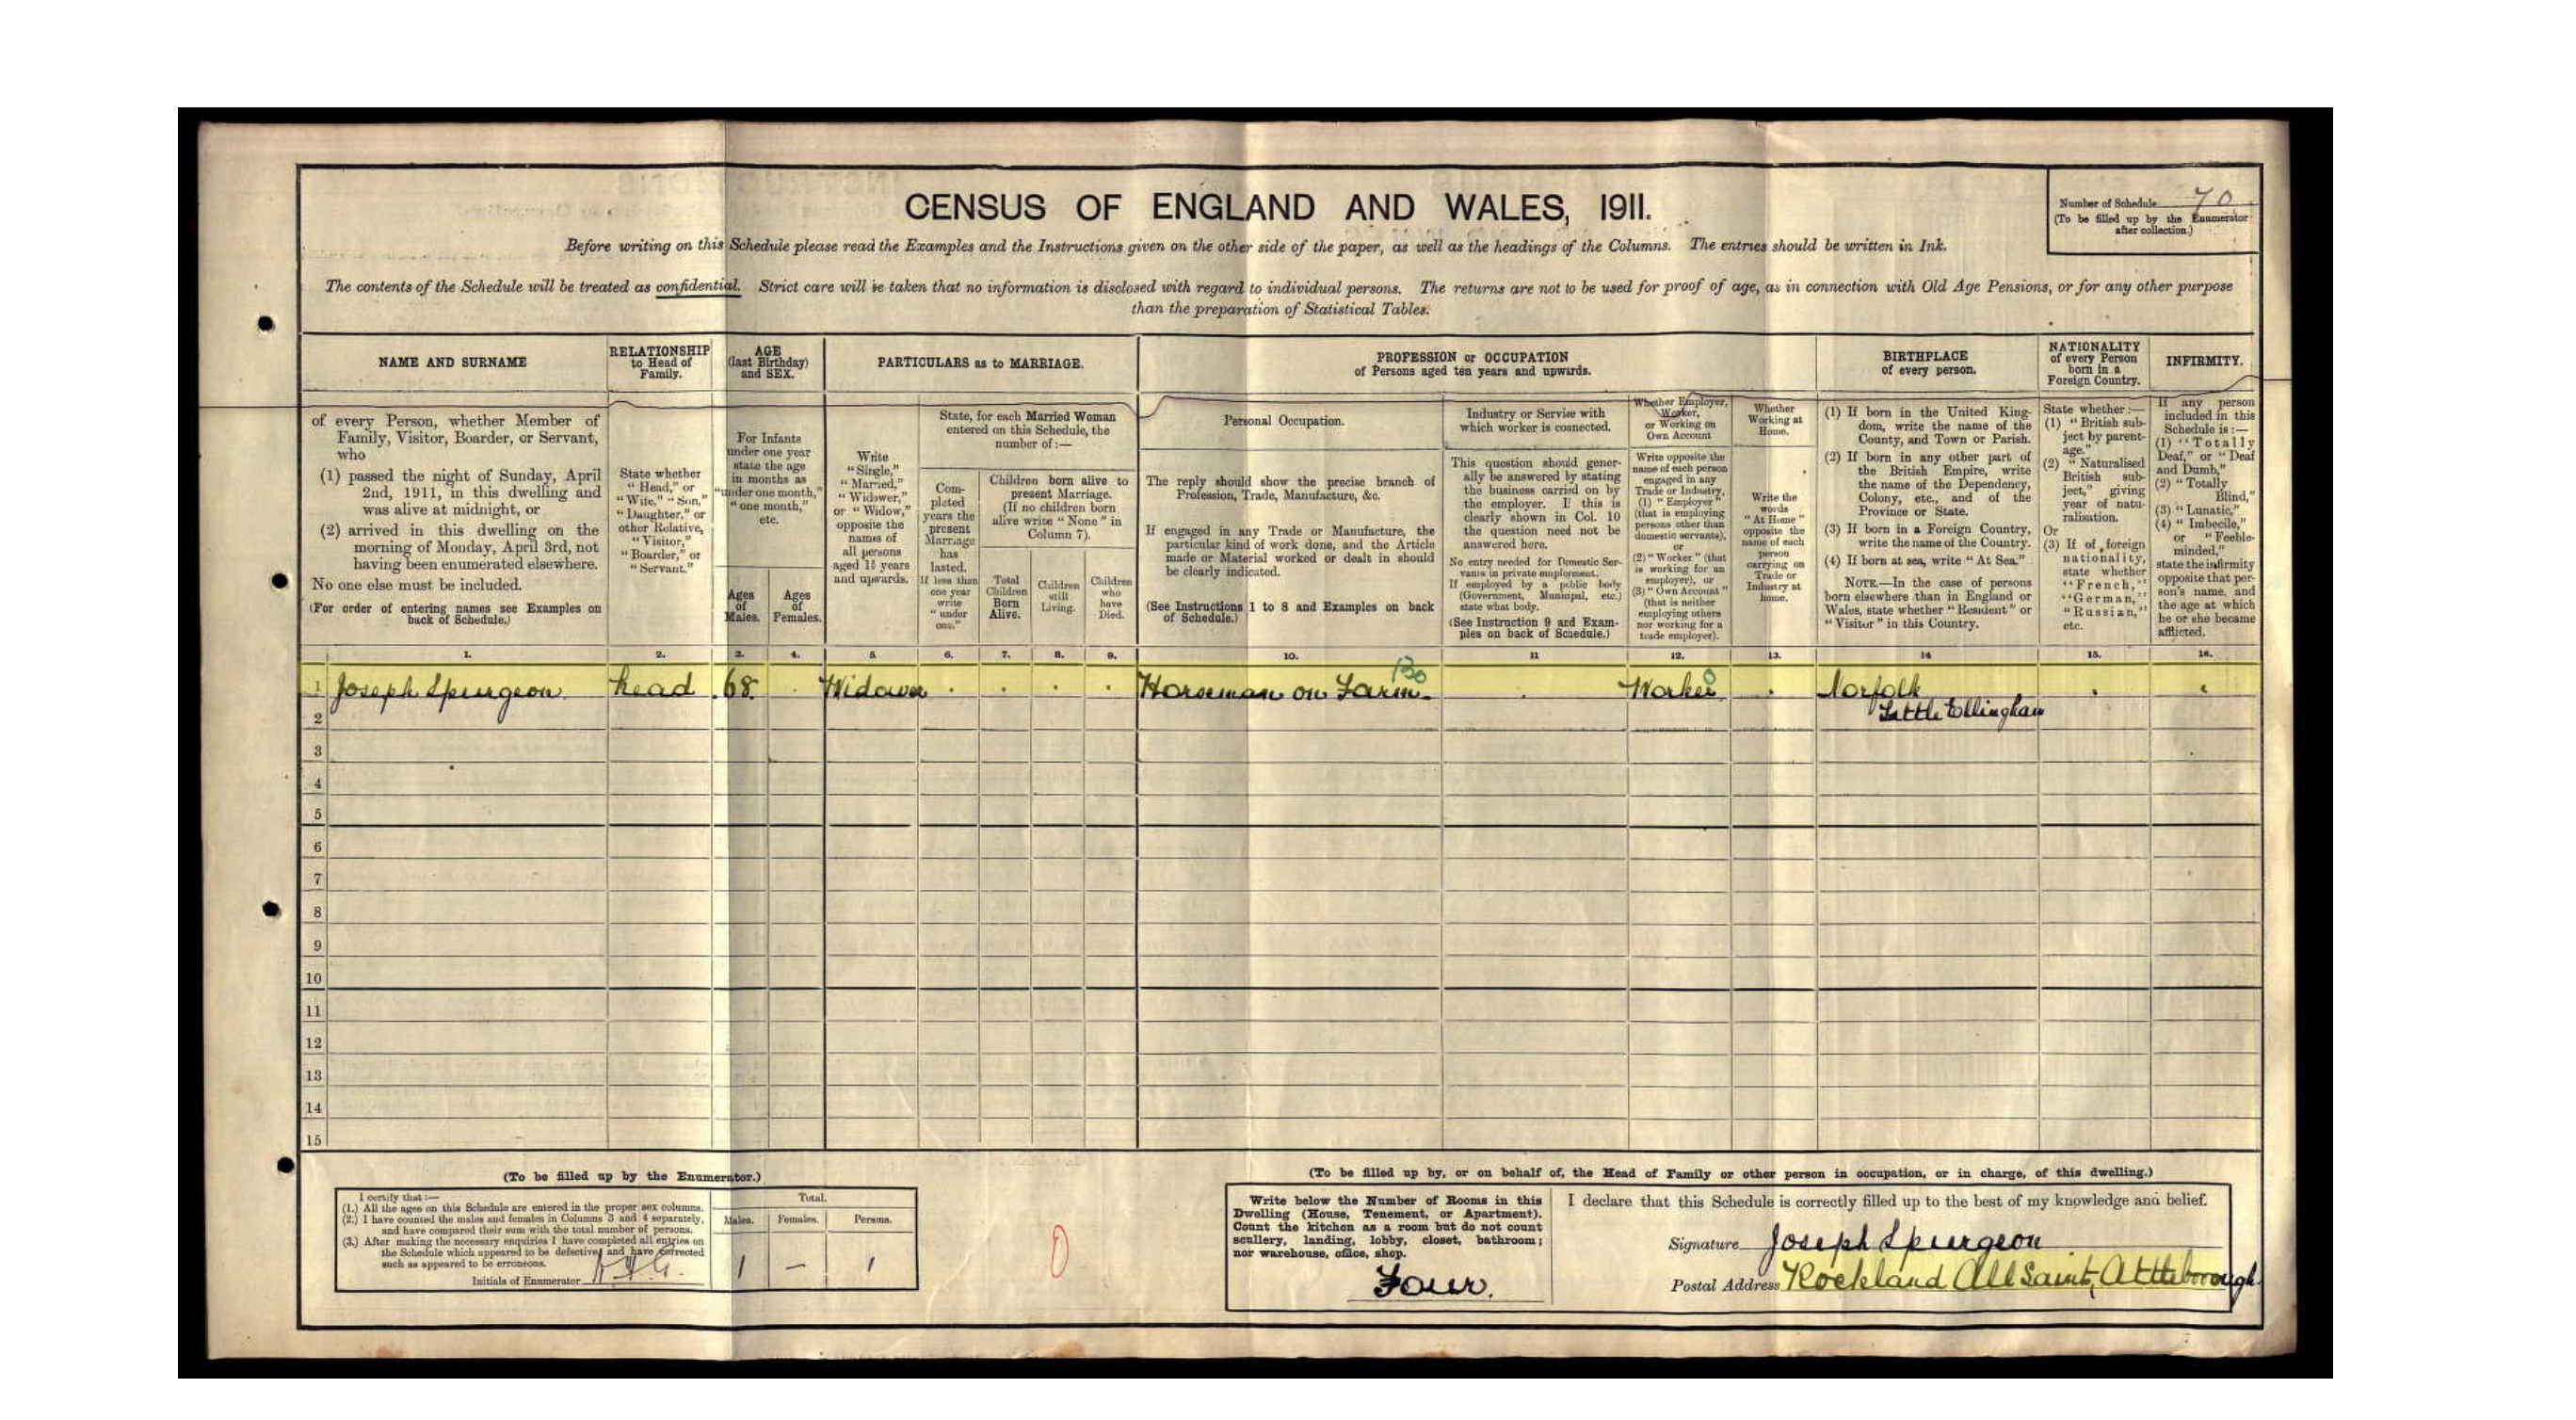 CENSUS OF ENGLAND AND WALES, 1911.
Number of Schedule 70
(To be filled up by the Enumerator
after collection.)
Before writing on this Schedule please read the Examples and the Instructions given on the other side of the paper, as well as the headings of the Columns. The entries should be written in Ink.
The contents of the Schedule will be treated as confidential. Strict care will be taken that no information is disclosed with regard to individual persons. The returns are not to be used for proof of age, as in connection with Old Age Pensions, or for any other purpose
than the preparation of Statistical Tables.
NAME AND SURNAME
of every Person, whether Member of
Family, Visitor, Boarder, or Servant,
who
(1) passed the night of Sunday, April
2nd, 1911, in this dwelling and
was alive at midnight, or
(2) arrived in this dwelling on the
morning of Monday, April 3rd, not
having been enumerated elsewhere.
No one else must be included.
(For order of entering names see Examples on
back of Schedule.)
RELATIONSHIP
to Head of
Family.
State whether
"Head," or
"Wife," "Son,"
"Daughter," or
other Relative,
"Visitor,"
"Boarder," or
"Servant."
AGE
(last Birthday)
and SEX.
For Infants
under one year
state the age
in months as
"under one month,"
"one month,"
etc.
Ages
of
Males.
Ages
of
Females.
PARTICULARS as to MARRIAGE.
Write
"Single,"
"Married,"
"Widower,"
or "Widow,"
opposite the
names of
all persons
aged 15 years
and upwards.
State, for each Married Woman
entered on this Schedule, the
number of:—
Com-
pleted
years the
present
Marriage
has
lasted.
If less than
one year
write
"under
one."
Children born alive to
present Marriage.
(If no children born
alive write "None" in
Column 7).
Total
Children
Born
Alive.
Children
still
Living.
Children
who
have
Died.
PROFESSION or OCCUPATION
of Persons aged ten years and upwards.
Personal Occupation.
The reply should show the precise branch of
Profession, Trade, Manufacture, &c.
If engaged in any Trade or Manufacture, the
particular kind of work done, and the Article
made or Material worked or dealt in should
be clearly indicated.
(See Instructions 1 to 8 and Examples on back
of Schedule.)
Industry or Service with
which worker is connected.
This question should gener-
ally be answered by stating
the business carried on by
the employer. If this is
clearly shown in Col. 10
the question need not be
answered here.
No entry needed for Domestic Ser-
vants in private employment.
If employed by a public body
(Government, Municipal, etc.)
state what body.
(See Instruction 9 and Exam-
ples on back of Schedule.)
Whether Employer,
Worker,
or Working on
Own Account
Write opposite the
name of each person
engaged in any
Trade or Industry,
(1) "Employer"
(that is employing
persons other than
domestic servants),
or
(2) "Worker" (that
is working for an
employer), or
(3) "Own Account"
(that is neither
employing others
nor working for a
trade employer).
Whether
Working at
Home.
Write the
words
"At Home"
opposite the
name of each
person
carrying on
Trade or
Industry at
home.
BIRTHPLACE
of every person.
(1) If born in the United King-
dom, write the name of the
County, and Town or Parish.
(2) If born in any other part of
the British Empire, write
the name of the Dependency,
Colony, etc., and of the
Province or State.
(3) If born in a Foreign Country,
write the name of the Country.
(4) If born at sea, write "At Sea."
NOTE.—In the case of persons
born elsewhere than in England or
Wales, state whether "Resident" or
"Visitor" in this Country.
NATIONALITY
of every Person
born in a
Foreign Country.
State whether:—
(1) "British sub-
ject by parent-
age."
(2) "Naturalised
British sub-
ject," giving
year of natu-
ralisation.
Or
(3) If of foreign
nationality,
state whether
"French,"
"German,"
"Russian,"
etc.
INFIRMITY.
If any person
included in this
Schedule is:—
(1) "Totally
Deaf," or "Deaf
and Dumb,"
(2) "Totally
Blind,"
(3) "Lunatic,"
(4) "Imbecile,"
or "Feeble-
minded,"
state the infirmity
opposite that per-
son's name, and
the age at which
he or she became
afflicted.
1. 2. 3. 4. 5 6. 7. 8. 9. 10. 11 12. 13. 14 15. 16.
130 0
1 Joseph Spurgeon head 68 Widower Horseman on Farm Worker Norfolk
2 Little Ellingham
3
4
5
6
7
8
9
10
11
12
13
14
15
(To be filled up by the Enumerator.)
I certify that:—
(1.) All the ages on this Schedule are entered in the proper sex columns.
(2.) I have counted the males and females in Columns 3 and 4 separately,
and have compared their sum with the total number of persons.
(3.) After making the necessary enquiries I have completed all entries on
the Schedule which appeared to be defective, and have corrected
such as appeared to be erroneous.
Initials of Enumerator
Total.
Males. Females. Persons.
1 — 1
0
(To be filled up by, or on behalf of, the Head of Family or other person in occupation, or in charge, of this dwelling.)
Write below the Number of Rooms in this
Dwelling (House, Tenement, or Apartment).
Count the kitchen as a room but do not count
scullery, landing, lobby, closet, bathroom;
nor warehouse, office, shop.
Four.
I declare that this Schedule is correctly filled up to the best of my knowledge and belief.
Signature Joseph Spurgeon
Postal Address Rockland All Saint, Attleborough